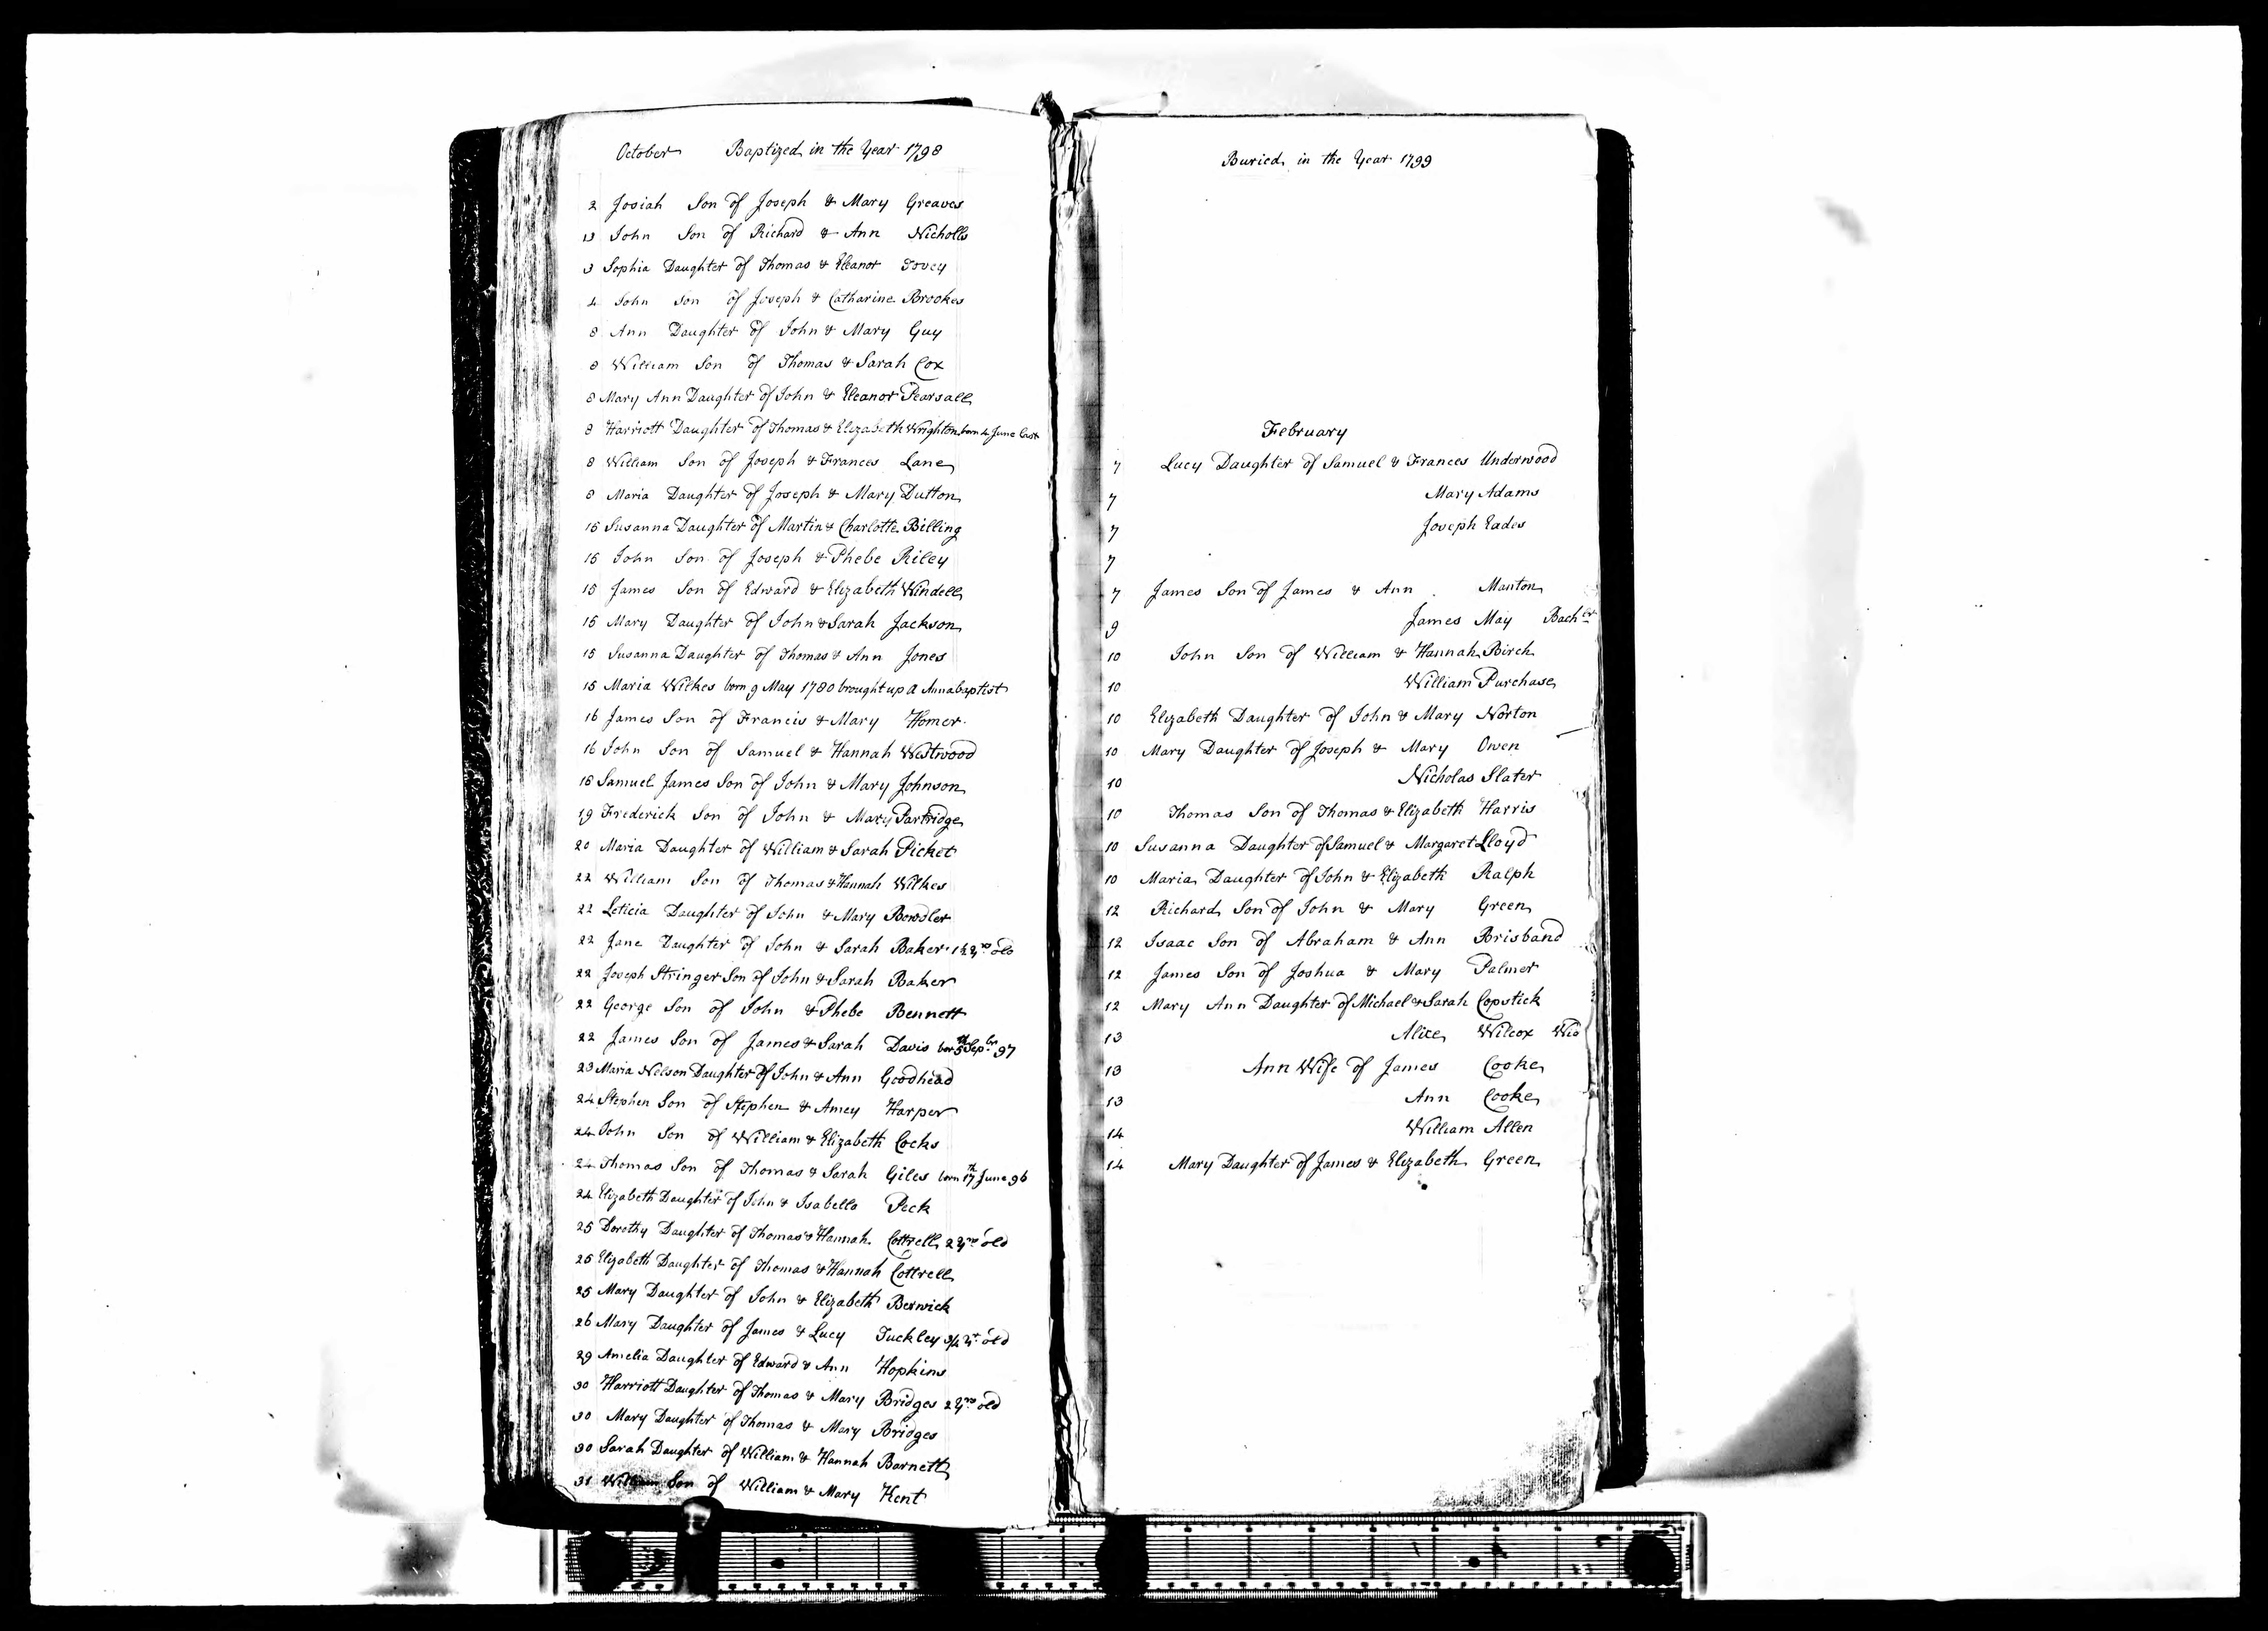 October Baptized in the Year 1798
2 Josiah Son of Joseph & Mary Greaves
13 John Son of Richard & Ann Nicholls
3 Sophia Daughter of Thomas & Eleanor Tovey
4 John Son of Joseph & Catharine Brookes
8 Ann Daughter of John & Mary Guy
8 William Son of Thomas & Sarah Cox
8 Mary Ann Daughter of John & Eleanor Pearsall
8 Harriott Daughter of Thomas & Elizabeth Wrighton born 4 June last
8 William Son of Joseph & Frances Lane
8 Maria Daughter of Joseph & Mary Dutton
15 Susanna Daughter of Martin & Charlotte Billing
15 John Son of Joseph & Phebe Riley
15 James Son of Edward & Elizabeth Windell
15 Mary Daughter of John & Sarah Jackson
15 Susanna Daughter of Thomas & Ann Jones
15 Maria Wilkes born 9 May 1780 brought up a Annabaptist
16 James Son of Francis & Mary Homer
16 John Son of Samuel & Hannah Westwood
18 Samuel James Son of John & Mary Johnson
19 Frederick Son of John & Mary Partridge
20 Maria Daughter of William & Sarah Picket
22 William Son of Thomas & Hannah Wilkes
22 Leticia Daughter of John & Mary Bowdler
22 Jane Daughter of John & Sarah Baker 1½ yrs old
22 Joseph Stringer Son of John & Sarah Baker
22 George Son of John & Phebe Bennett
22 James Son of James & Sarah Davis born 5th Sepbr 97
23 Maria Nelson Daughter of John & Ann Goodhead
24 Stephen Son of Stephen & Amey Harper
24 John Son of William & Elizabeth Cocks
24 Thomas Son of Thomas & Sarah Giles born 17th June 96
24 Elizabeth Daughter of John & Isabella Peck
25 Dorothy Daughter of Thomas & Hannah Cottrell 2 yrs old
25 Elizabeth Daughter of Thomas & Hannah Cottrell
25 Mary Daughter of John & Elizabeth Berwick
26 Mary Daughter of James & Lucy Tuckley 3/4 yr old
29 Amelia Daughter of Edward & Ann Hopkins
30 Harriott Daughter of Thomas & Mary Bridges 2 yrs old
30 Mary Daughter of Thomas & Mary Bridges
30 Sarah Daughter of William & Hannah Barnett
31 William Son of William & Mary Kent
Buried in the Year 1799
February
7 Lucy Daughter of Samuel & Frances Underwood
7 Mary Adams
7 Joseph Eades
7
7 James Son of James & Ann Manton
9 James May Bachlr
10 John Son of William & Hannah Birch
10 William Purchase
10 Elizabeth Daughter of John & Mary Norton
10 Mary Daughter of Joseph & Mary Owen
10 Nicholas Slater
10 Thomas Son of Thomas & Elizabeth Harris
10 Susanna Daughter of Samuel & Margaret Lloyd
10 Maria Daughter of John & Elizabeth Ralph
12 Richard Son of John & Mary Green
12 Isaac Son of Abraham & Ann Brisband
12 James Son of Joshua & Mary Palmer
12 Mary Ann Daughter of Michael & Sarah Copstick
13 Alice Wilcox Wid
13 Ann Wife of James Cooke
13 Ann Cooke
14 William Allen
14 Mary Daughter of James & Elizabeth Green